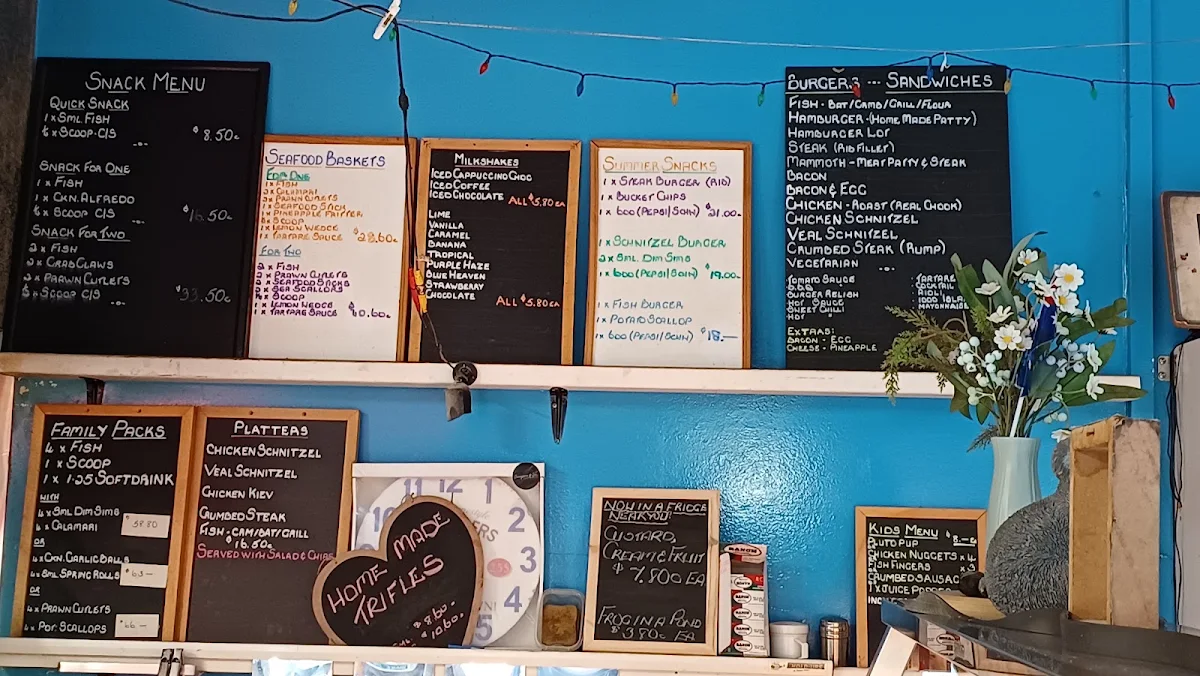 SNACK MENU
QUICK SNACK
1 x SML. FISH
½ x SCOOP C/S $8.50c
SNACK FOR ONE
1 x FISH
1 x CKN. ALFREDO
½ x SCOOP C/S $16.50c
SNACK FOR TWO
2 x FISH
2 x CRAB CLAWS
2 x PRAWN CUTLETS
½ x SCOOP C/S $33.50c
SEAFOOD BASKETS
FOR ONE
1 x FISH
CALAMARI
PRAWN CUTLETS
1 x SEAFOOD STICK
1 x PINEAPPLE FRITTER
SCOOP
1 x LEMON WEDGE
1 x TARTARE SAUCE $28.60c
FOR TWO
2 x FISH
PRAWN CUTLETS
SEAFOOD STICKS
SEA SCALLOPS
SCOOP
1 x LEMON WEDGE
1 x TARTARE SAUCE
MILKSHAKES
ICED CAPPUCINO CHOC
ICED COFFEE
ICED CHOCOLATE ALL $5.80 EA
LIME
VANILLA
CARAMEL
BANANA
TROPICAL
PURPLE HAZE
BLUE HEAVEN
STRAWBERRY
CHOCOLATE
ALL $5.80 EA
SUMMER SNACKS
1 x STEAK BURGER (RIB)
1 x BUCKET CHIPS
1 x 600 (PEPSI/SCHW) $21.00c
1 x SCHNITZEL BURGER
2 x SML. DIM SIMS
1 x 600 (PEPSI/SCHW) $19.00c
1 x FISH BURGER
1 x POTATO SCALLOP
1 x 600 (PEPSI/SCHW) $18.—
BURGERS --- SANDWICHES
FISH - BAT/CRMB/GRILL/FLOUR
HAMBURGER - (HOME MADE PATTY)
HAMBURGER LOT
STEAK (RIB FILLET)
MAMMOTH - MEAT PATTY & STEAK
BACON
BACON & EGG
CHICKEN - ROAST (REAL CHOOK)
CHICKEN SCHNITZEL
VEAL SCHNITZEL
CRUMBED STEAK (RUMP)
VEGETARIAN
TOMATO SAUCE - TARTARE
B.B.Q. COCKTAIL
BURGER RELISH - AIOLI
HOT SAUCE 1000 ISLA
SWEET CHILLI MAYONNAISE
EXTRAS:
BACON - EGG
CHEESE - PINEAPPLE
FAMILY PACKS
4 x FISH
1 x SCOOP
1 x 1.25 SOFTDRINK
WITH
4 x SML DIM SIMS
4 x CALAMARI 58.80
OR
4 x CKN. GARLIC BALLS
4 x SML SPRING ROLLS $63—
OR
4 x PRAWN CUTLETS
4 x POT. SCALLOPS $66—
PLATTERS
CHICKEN SCHNITZEL
VEAL SCHNITZEL
CHICKEN KIEV
CRUMBED STEAK
FISH - CRM/BAT/GRILL
$16.50c
SERVED WITH SALAD & CHIPS
10 12 1
2
3
4
5
HOME MADE
TRIFLES
$8.60.
$10.60.
NOW IN A FRIDGE
NEAR YOU:
CUSTARD,
CREAM & FRUIT
$7.80c EA
FROG IN A POND
$3.80c EA
KIDS MENU
PLUTO PUP $8.—
CHICKEN NUGGETS x 4
FISH FINGERS x 3
CRUMBED SAUSAG
1 x JUICE POPPER